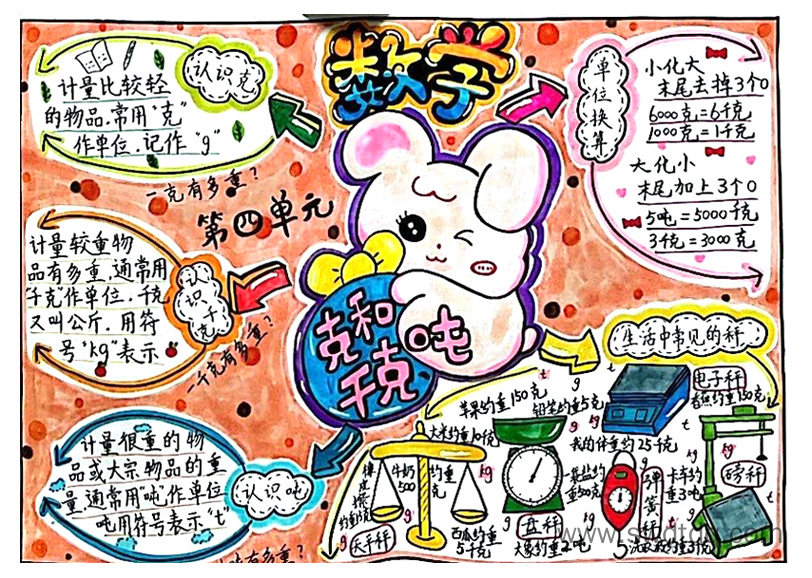 数学
认识克
计量比较轻
的物品,常用"克"
作单位,记作"g"
一克有多重?
第四单元
计量较重物
品有多重,通常用
"千克"作单位,千克
又叫公斤,用符
号"kg"表示
认识千克
一千克有多重?
克和
千克
吨
计量很重的物
品或大宗物品的重
量,通常用"吨"作单位
吨用符号表示"t"
认识吨
单位换算
小化大
末尾去掉3个0
6000克=6千克
1000克=1千克
大化小
末尾加上3个0
5吨=5000千克
3千克=3000克
生活中常见的秤
苹果约重150克
铅笔约重5克
电子秤
香蕉约重130克
大米约重10千克
我的体重约25千克
牛奶约重
500克
一袋盐约
重500克
卡车约
重3吨
弹簧秤
磅秤
西瓜约重
5千克
盘秤
大象约重2吨
天平秤